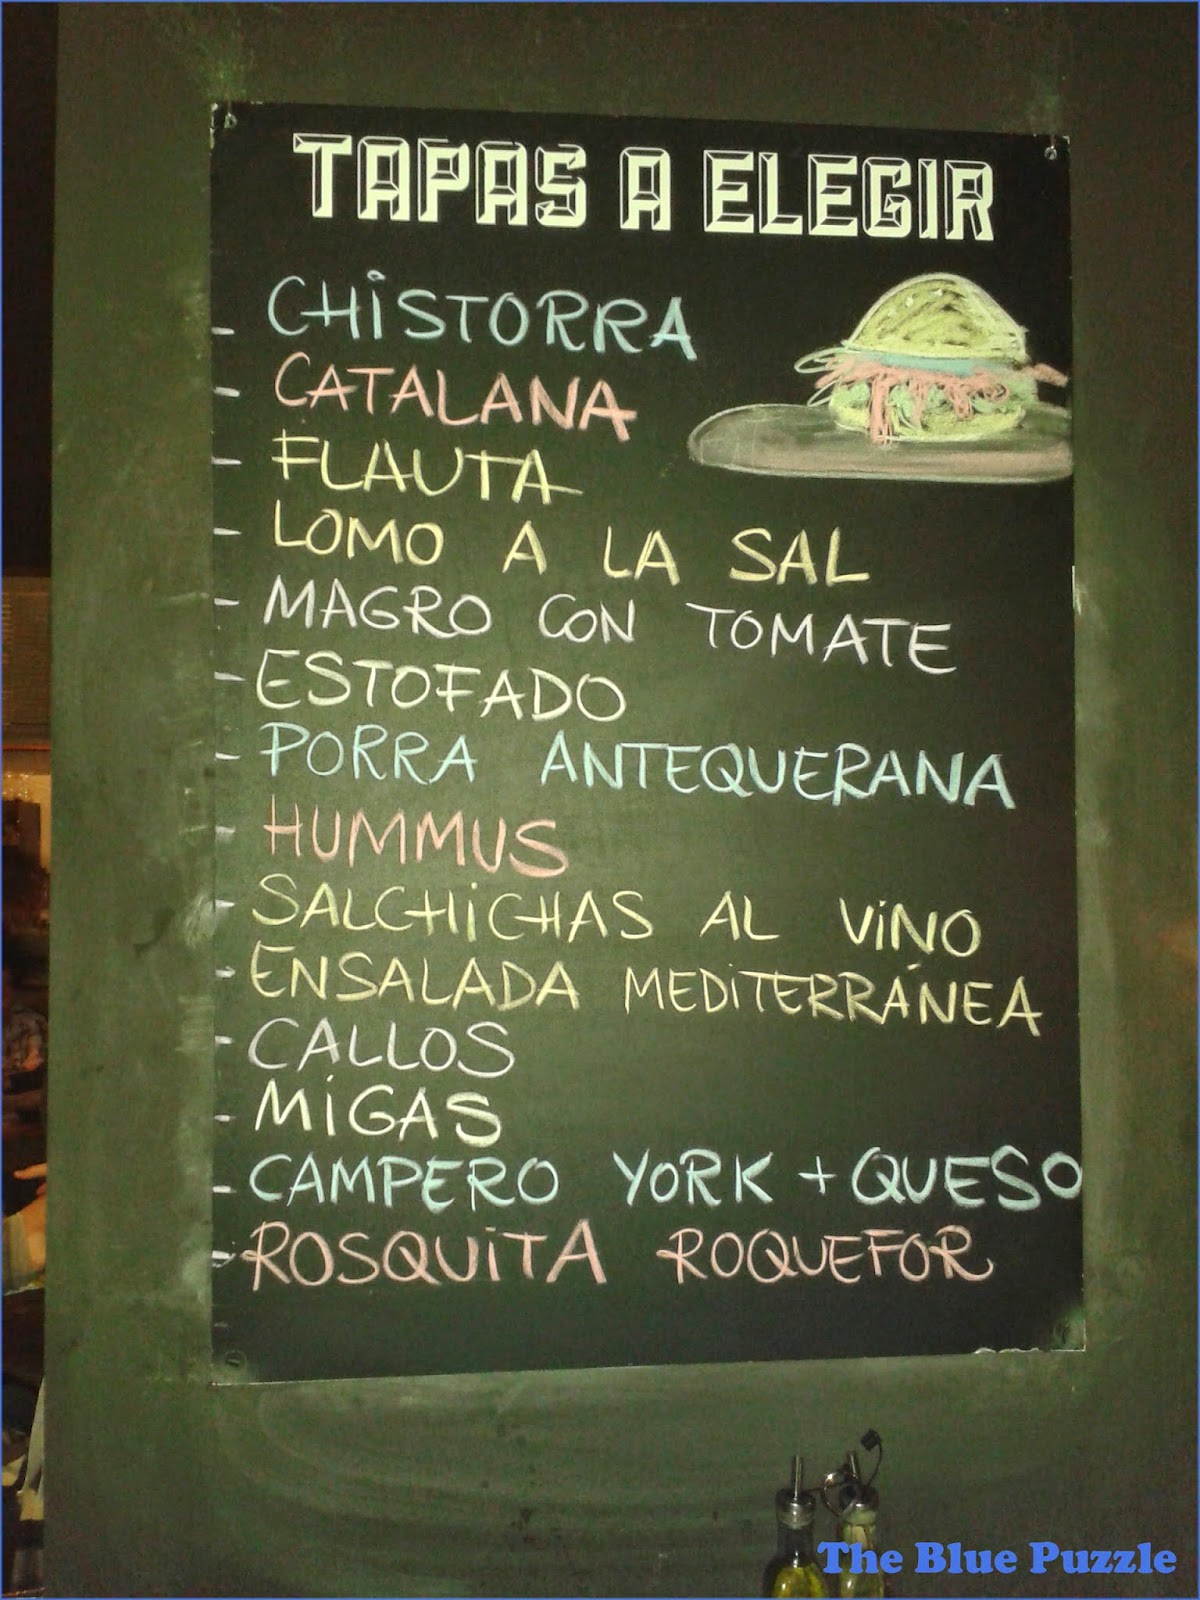 TAPAS A ELEGIR
- CHiSTORRA
- CATALANA
- FLAUTA
- LOMO A LA SAL
- MAGRO CON TOMATE
- ESTOFADO
- PORRA ANTEQUERANA
- HUMMUS
- SALCHiCHAS AL ViNO
- ENSALADA MEDiTERRÁNEA
- CALLOS
- MiGAS
- CAMPERO YORK + QUESO
- ROSQUiTA ROQUEFOR
The Blue Puzzle